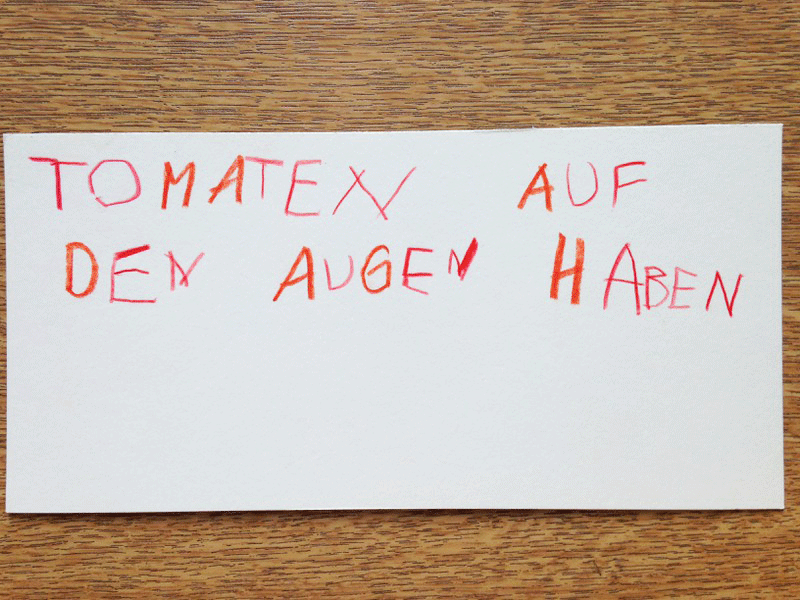 TOMATEN AUF
DEN AUGEN HABEN